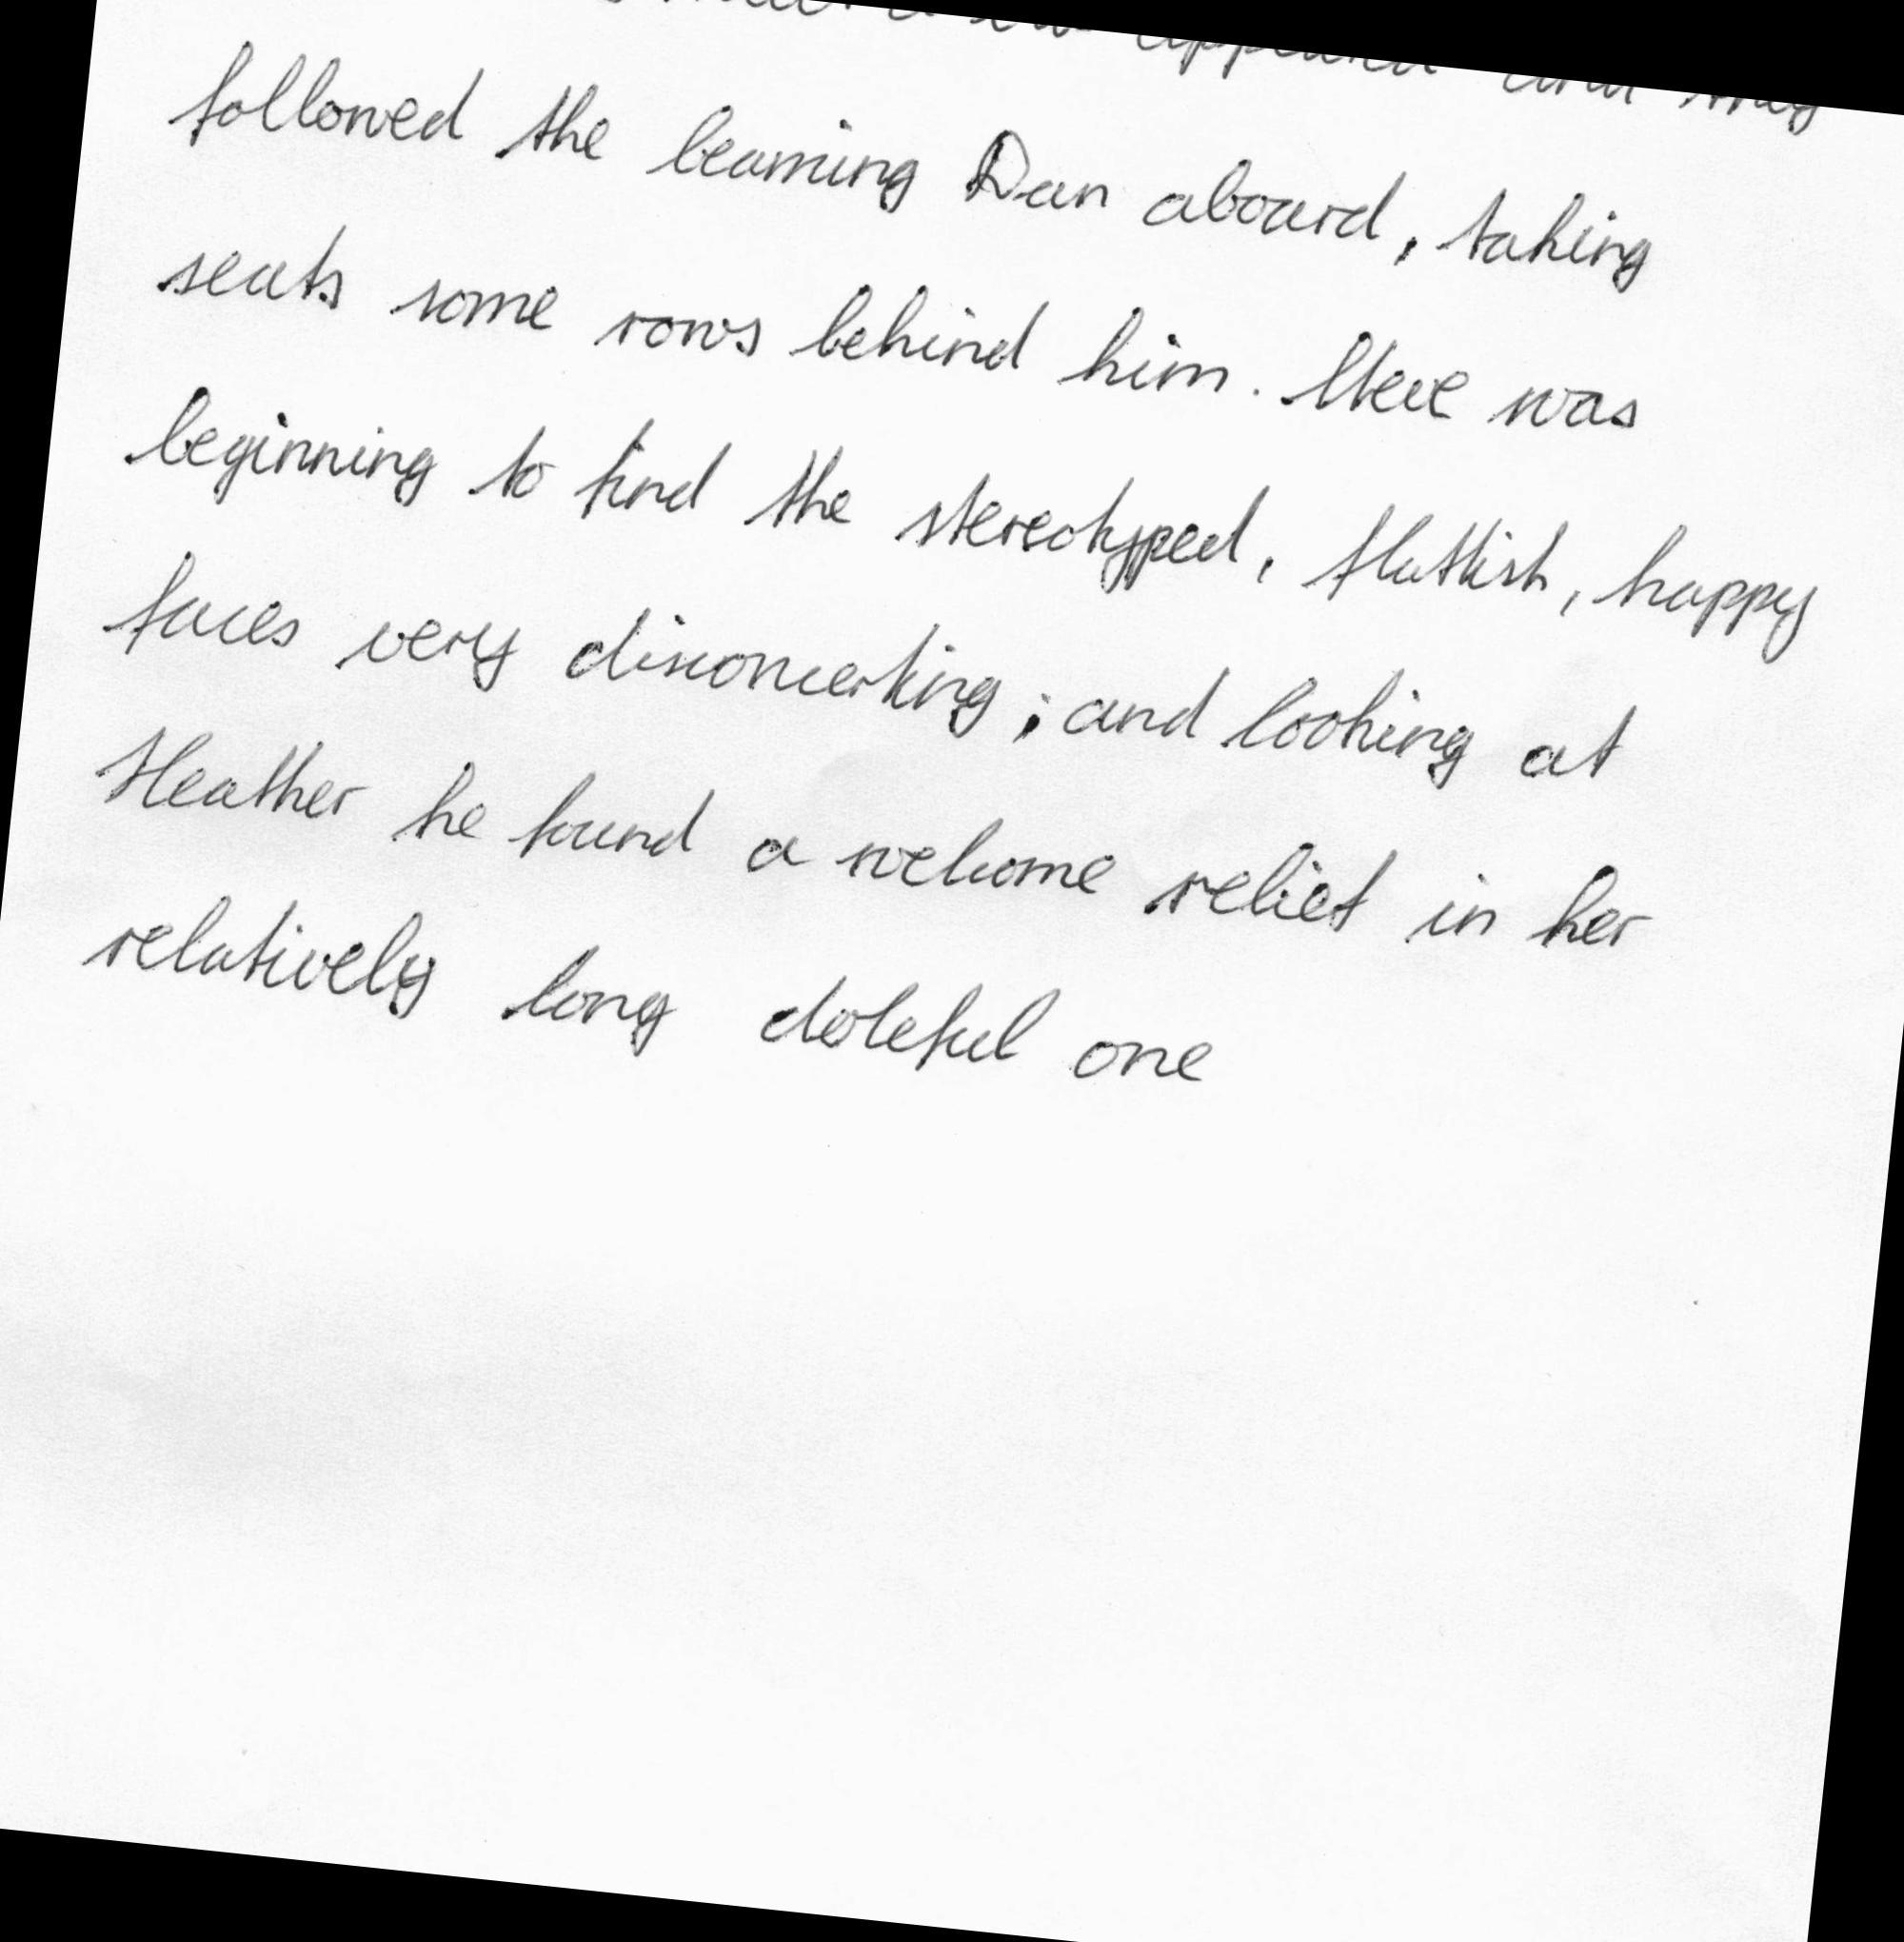 appeared and they
followed the beaming Dan aboard, taking
seats some rows behind him. Steve was
beginning to find the stereotyped, flattish, happy
faces very disconcerting; and looking at
Heather he found a welcome relief in her
relatively long doleful one